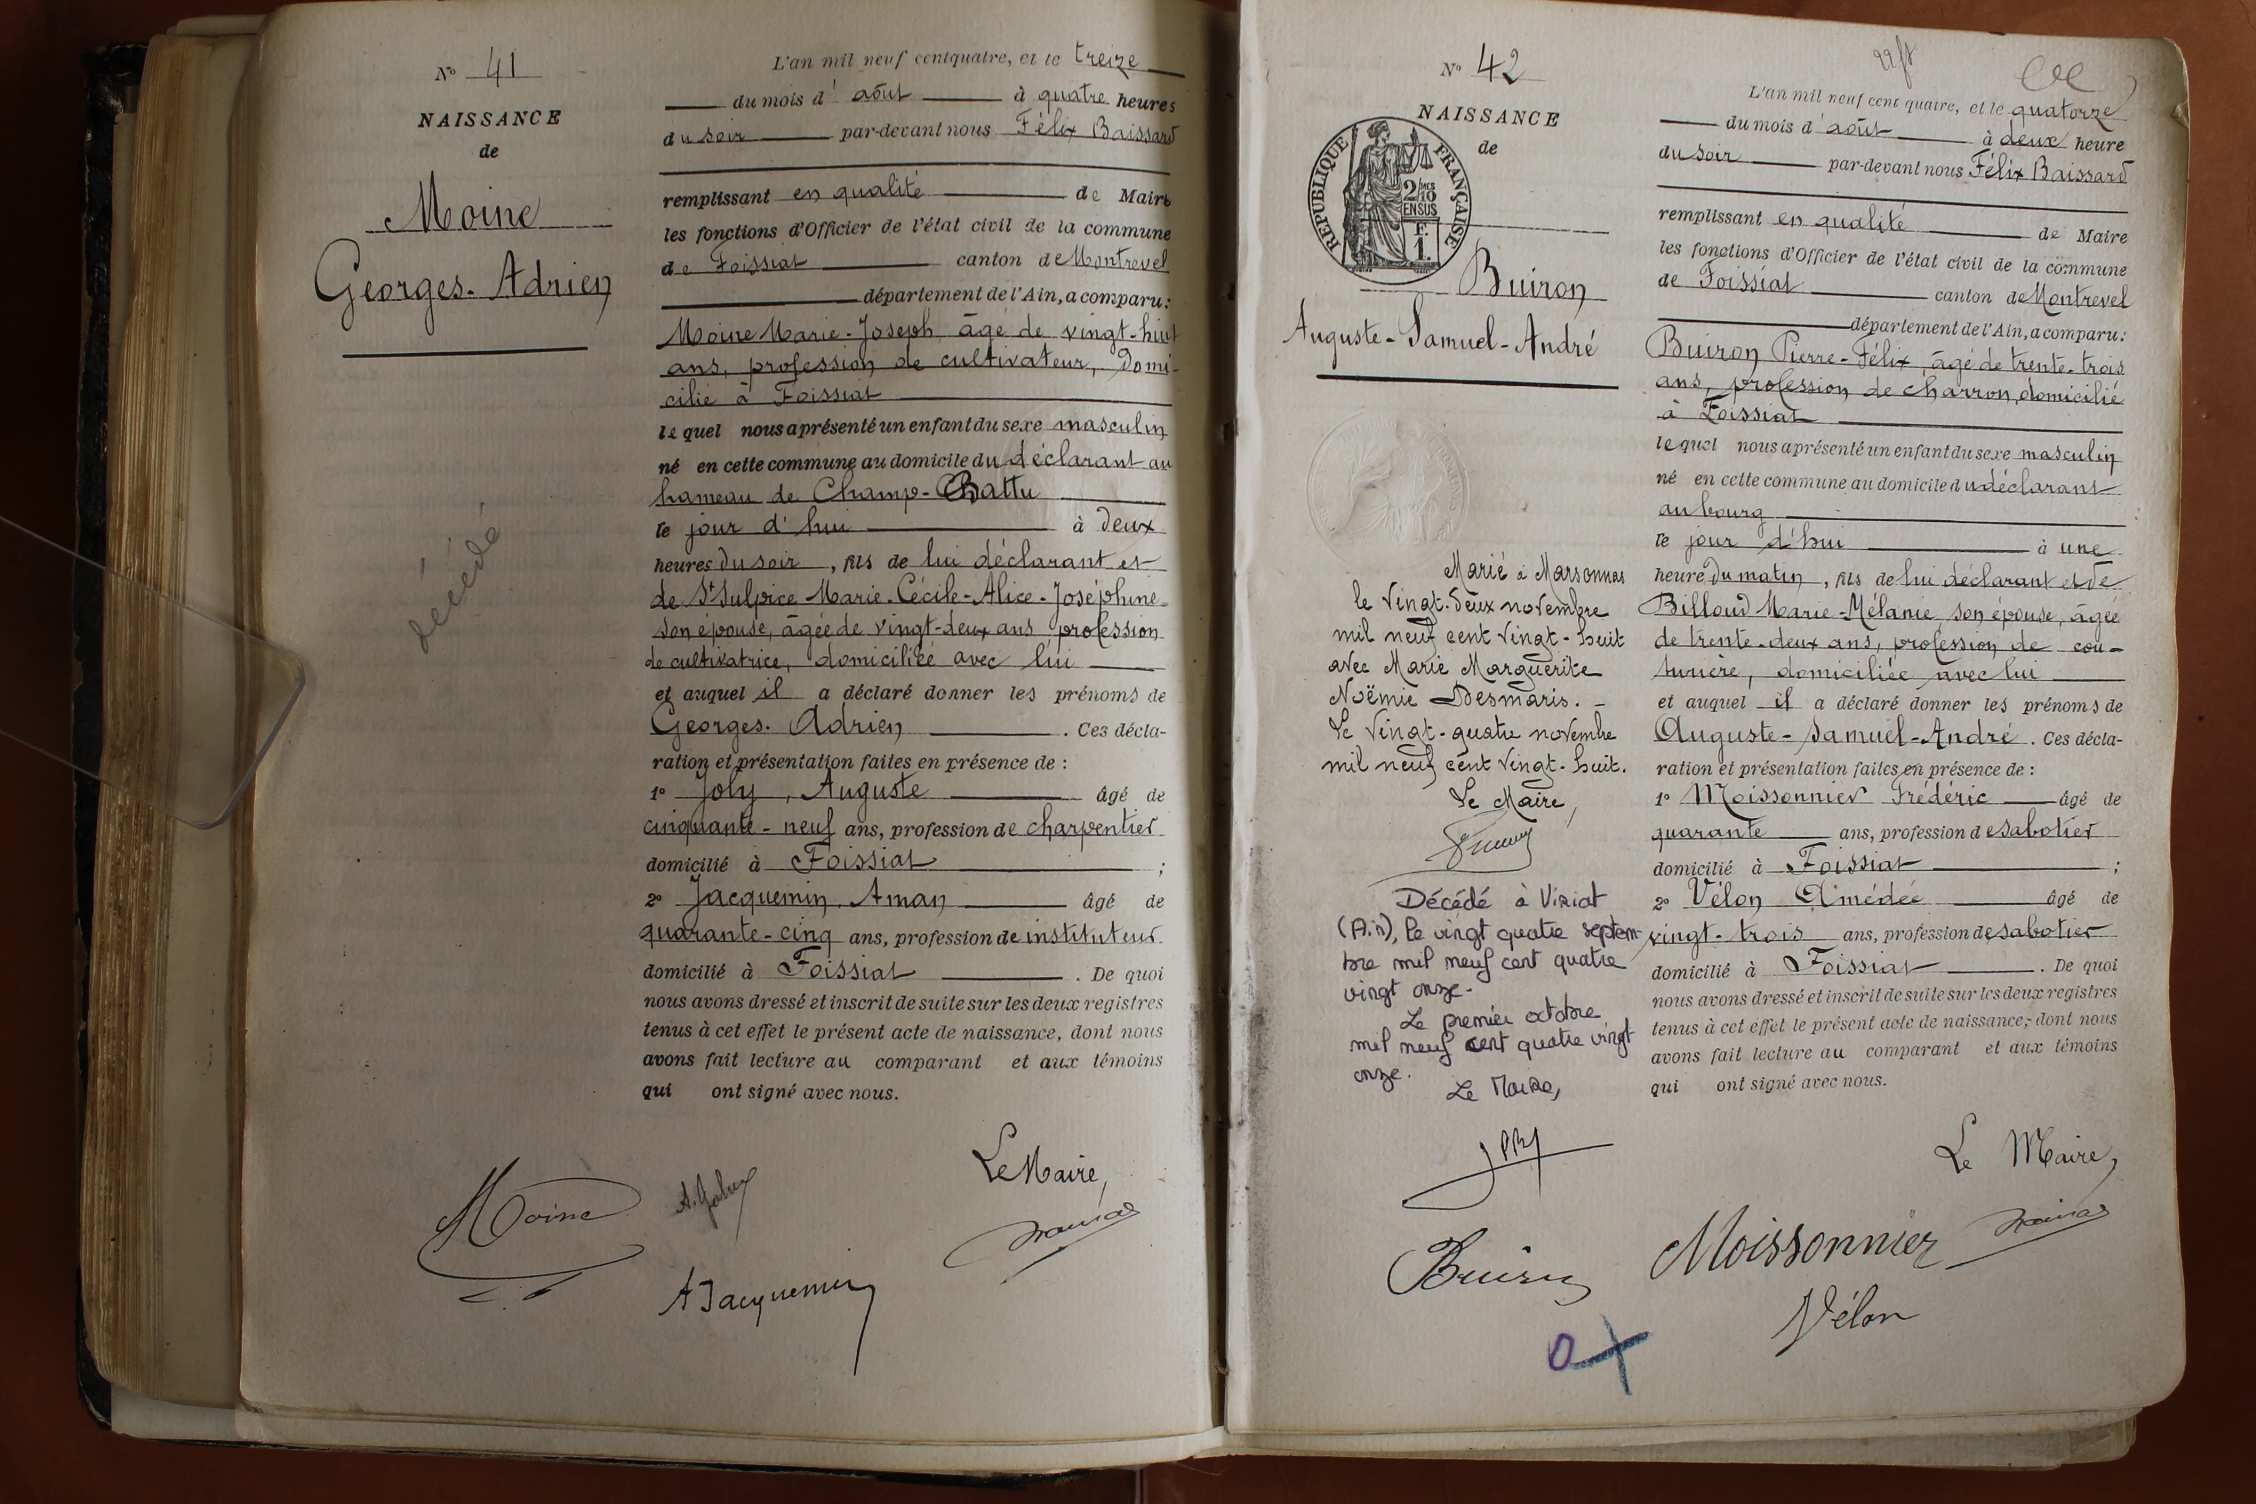 N° 41
NAISSANCE
de
Moine
Georges-Adrien
décédé
L'an mil neuf cent quatre, et le treize
du mois d'août à quatre heures
du soir par-devant nous Félix Baissard
remplissant en qualité de Maire
les fonctions d'Officier de l'état civil de la commune
de Foissiat canton de Montrevel
département de l'Ain, a comparu:
Moine Marie-Joseph, âgé de vingt-huit
ans, profession de cultivateur, domi-
cilié à Foissiat
lequel nous a présenté un enfant du sexe masculin
né en cette commune au domicile du déclarant au
hameau de Champ-Battu
le jour d'hui à deux
heures du soir, fils de lui déclarant et
de St Sulpice Marie-Cécile-Alice-Joséphine
son épouse, âgée de vingt-deux ans profession
de cultivatrice, domiciliée avec lui
et auquel il a déclaré donner les prénoms de
Georges-Adrien. Ces décla-
ration et présentation faites en présence de:
1° Joly, Auguste âgé de
cinquante-neuf ans, profession de charpentier
domicilié à Foissiat;
2° Jacquemin, Aman âgé de
quarante-cinq ans, profession de instituteur
domicilié à Foissiat. De quoi
nous avons dressé et inscrit de suite sur les deux registres
tenus à cet effet le présent acte de naissance, dont nous
avons fait lecture au comparant et aux témoins
qui ont signé avec nous.
Le Maire,
Moine
A Jacquemin
N° 42
NAISSANCE
de
RÉPUBLIQUE FRANÇAISE
2/10 MES
EN SUS
F.
1.
Buiron
Auguste-Samuel-André
Marié à Marsonnas
le vingt-deux novembre
mil neuf cent vingt-huit
avec Marie Marguerite
Noëmie Desmaris.
Le vingt-quatre novembre
mil neuf cent vingt-huit.
Le Maire,
Décédé à Viriat
(Ain), le vingt quatre septem-
bre mil neuf cent quatre
vingt onze.
Le premier octobre
mil neuf cent quatre vingt
onze.
Le Maire,
L'an mil neuf cent quatre, et le quatorze
du mois d'août à deux heure
du soir par-devant nous Félix Baissard
remplissant en qualité de Maire
les fonctions d'Officier de l'état civil de la commune
de Foissiat canton de Montrevel
département de l'Ain, a comparu:
Buiron Pierre-Félix, âgé de trente-trois
ans, profession de charron, domicilié
à Foissiat
lequel nous a présenté un enfant du sexe masculin
né en cette commune au domicile du déclarant
au bourg
le jour d'hui à une
heure du matin, fils de lui déclarant et de
Billoud Marie-Mélanie son épouse, âgée
de trente-deux ans, profession de cou-
turière, domiciliée avec lui
et auquel il a déclaré donner les prénoms de
Auguste-Samuel-André. Ces décla-
ration et présentation faites en présence de:
1° Moissonnier Frédéric âgé de
quarante ans, profession de sabotier
domicilié à Foissiat;
2° Vélon Amédée âgé de
vingt-trois ans, profession de sabotier
domicilié à Foissiat. De quoi
nous avons dressé et inscrit de suite sur les deux registres
tenus à cet effet le présent acte de naissance, dont nous
avons fait lecture au comparant et aux témoins
qui ont signé avec nous.
Le Maire,
Buiron
Moissonnier
Vélon